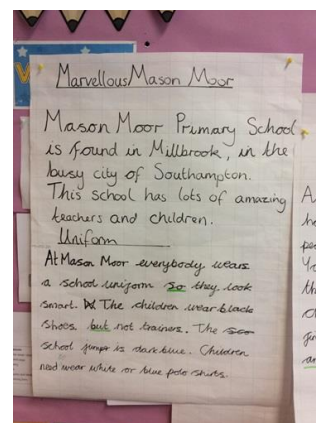 Marvellous Mason Moor
Mason Moor Primary School
is found in Millbrook, in the
busy city of Southampton.
This school has lots of amazing
teachers and children.
Uniform
At Mason Moor everybody wears
a school uniform so they look
smart. The children wear black
shoes, but not trainers. The
school jumper is dark blue. Children
need wear white or blue polo shirts.